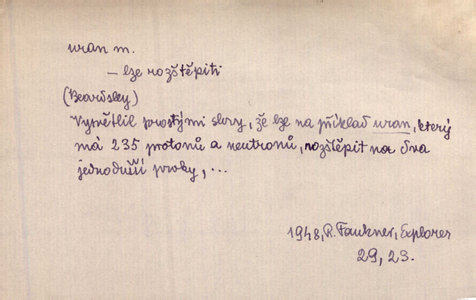 uran m.
– lze rozštěpiti
(Beardsley)
Vysvětlil prostými slovy, že lze na příklad uran, který
má 235 protonů a neutronů, rozštěpit na dva
jednodušší prvky, ...
1948, R. Faukner, Explorer
29, 23.